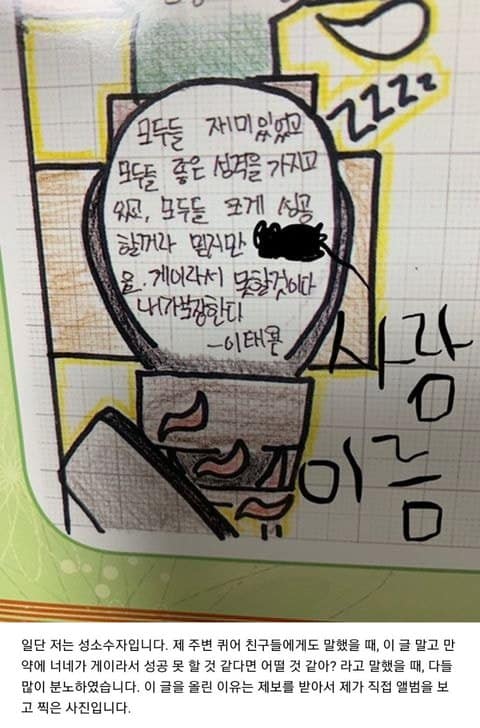 zzzz
모두들 재미있었고
모두들 좋은 성격을 가지고
있고, 모두들 크게 성공
할꺼라 믿지만
은. 게이라서 못할것이다
내가 장한다
사람
이름
일단 저는 성소수자입니다. 제 주변 퀴어 친구들에게도 말했을 때, 이 글 말고 만
약에 너네가 게이라서 성공 못 할 것 같다면 어떨 것 같아? 라고 말했을 때, 다들
많이 분노하였습니다. 이 글을 올린 이유는 제보를 받아서 제가 직접 앨범을 보
고 찍은 사진입니다.